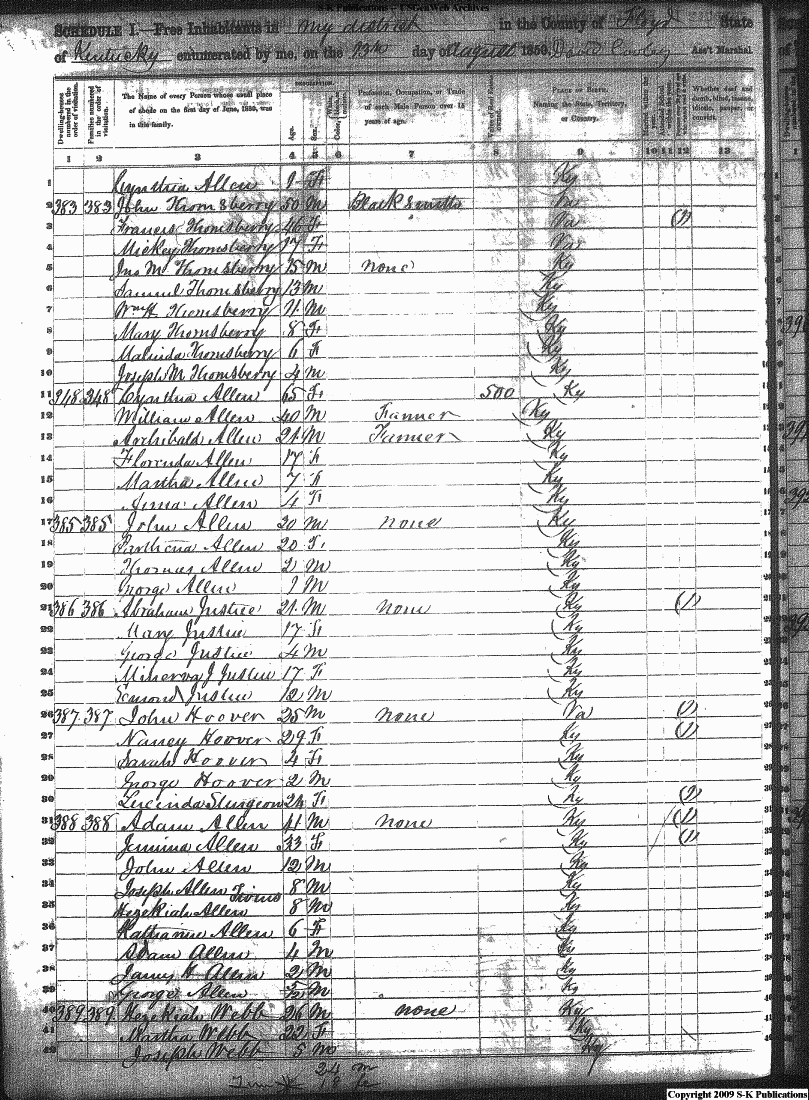 S-K Publications - USGenWeb Archives
SCHEDULE I.—Free Inhabitants in my district in the County of Floyd State
of Kentucky enumerated by me, on the 13th day of August 1850. Ass't Marshal.
Dwelling-houses numbered in the order of visitation.
Families numbered in the order of visitation.
The Name of every Person whose usual place of abode on the first day of June, 1850, was in this family.
DESCRIPTION.
Age.
Sex.
Profession, Occupation, or Trade of each Male Person over 15 years of age.
PLACE OF BIRTH. Naming the State, Territory, or Country.
Whether deaf and dumb, blind, insane, idiotic, pauper, or convict.
1 2 3 4 5 6 7 8 9 10 11 12 13
1 Cyndria Allen 9 F Ky
2 383 383 John Thornsberry 50 M Black Smith Va
3 Francis Thornsberry 46 F Va (1)
4 Mickey Thornsberry 17 F Va
5 Jno M Thornsberry 15 M none Ky
6 Samuel Thornsberry 13 M Ky
7 Wm H Thornsberry 11 M Ky
8 Mary Thornsberry 8 F Ky
9 Malinda Thornsberry 6 F Ky
10 Joseph M Thornsberry 4 M Ky
11 348 348 Cynthia Allen 65 F 500 Ky
12 William Allen 40 M Farmer Ky
13 Archibald Allen 21 M Farmer Ky
14 Florenda Allen 17 F Ky
15 Martha Allen 7 F Ky
16 Anna Allen 4 F Ky
17 385 385 John Allen 20 M none Ky
18 Parthena Allen 20 F Ky
19 Thomas Allen 2 M Ky
20 George Allen 1 M Ky
21 386 386 Abraham Justice 21 M none Ky (1)
22 Mary Justice 17 F Ky
23 George Justice 4 M Ky
24 Minerva J Justice 17 F Ky
25 Edmond Justice 12 M Ky
26 387 387 John Hoover 25 M none Va (1)
27 Nancy Hoover 29 F Ky (1)
28 Sarah Hoover 4 F Ky
29 George Hoover 2 M Ky
30 Lucinda Sturgeon 24 F Ky (1)
31 388 388 Adam Allen 41 M none Ky / (1)
32 Jemima Allen 33 F Ky (1)
33 John Allen 12 M Ky
34 Joseph Allen Twins 8 M Ky
35 Hezekiah Allen 8 M Ky
36 Katharine Allen 6 F Ky
37 Adam Allen 4 M Ky
38 James H Allen 2 M Ky
39 George Allen M Ky
40 389 389 Hezekiah Webb 26 M none Ky
41 Martha Webb 22 F Ky
42 Joseph Webb 5 M Ky
24 m
18 fe
Copyright 2009 S-K Publications